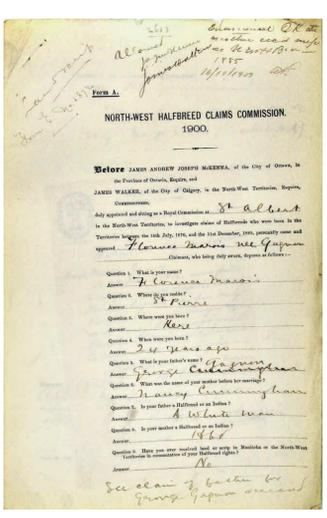 2613
Form A.
NORTH-WEST HALFBREED CLAIMS COMMISSION.
1900.
Before JAMES ANDREW JOSEPH McKENNA, of the City of Ottawa, in
the Province of Ontario, Esquire, and
JAMES WALKER, of the City of Calgary, in the North-West Territories, Esquire,
COMMISSIONERS,
duly appointed and sitting as a Royal Commission at St Albert
in the North-West Territories, to investigate claims of Halfbreeds who were born in the
Territories between the 15th July, 1870, and the 31st December, 1885, personally came and
appeared Florence Marois nee Gagnon
Claimant, who being duly sworn, deposes as follows:—
Question 1. What is your name?
Answer Florence Marois
Question 2. Where do you reside?
Answer St Pierre
Question 3. Where were you born?
Answer Here
Question 4. When were you born?
Answer 24 years ago
Question 5. What is your father's name? Gagnon
Answer George Cunningham
Question 6. What was the name of your mother before her marriage?
Answer Nancy Cunningham
Question 7. Is your father a Halfbreed or an Indian?
Answer A White man
Question 8. Is your mother a Halfbreed or an Indian?
Answer
Question 9. Have you ever received land or scrip in Manitoba or the North-West
Territories in commutation of your Halfbreed rights?
Answer No
See claim of father for
George Gagnon deceased